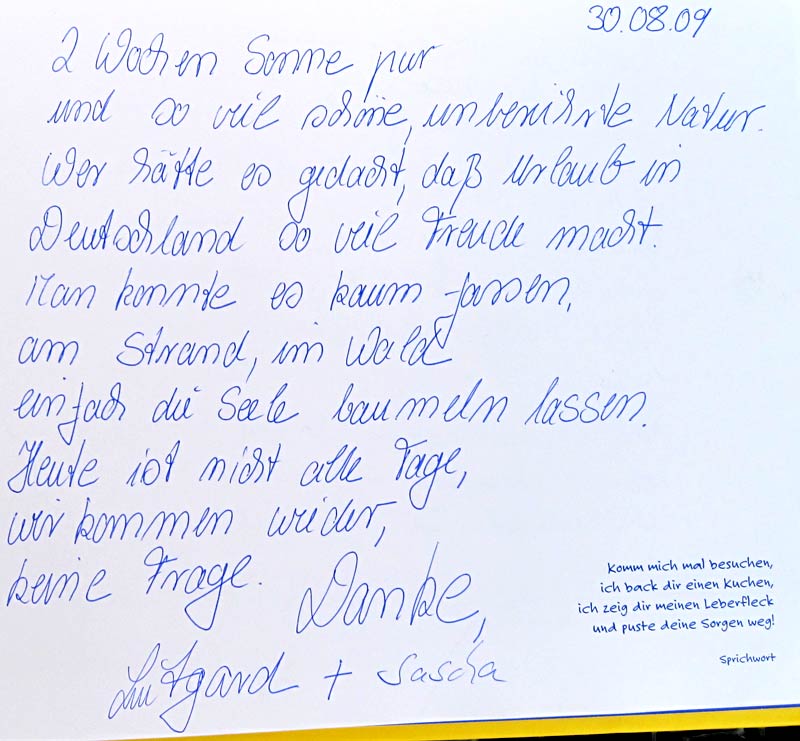 30.08.09
2 Wochen Sonne pur
und so veil schöne, unberührte Natur.
Wer hätte es gedacht, daß Urlaub in
Deutschland so veil Freude macht.
Man konnte es kaum fassen,
am Strand, im Wald
einfach die Seele baumeln lassen.
Heute ist nicht alle Tage,
wir kommen wieder,
keine Frage.
Danke,
Lutgard + Sascha
Komm mich mal besuchen,
ich back dir einen Kuchen,
ich zeig dir meinen Leberfleck
und puste deine Sorgen weg!
Sprichwort